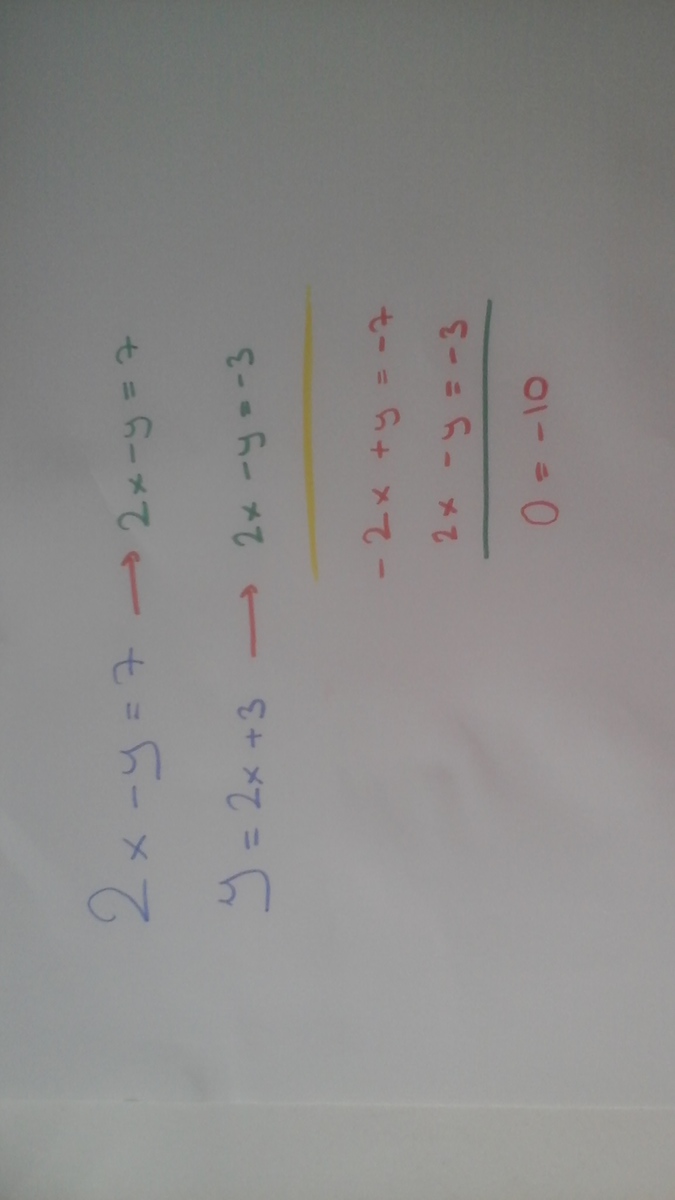 2x - y = 7 → 2x - y = 7
y = 2x + 3 → 2x - y = -3
-2x + y = -7
2x - y = -3
0 = -10